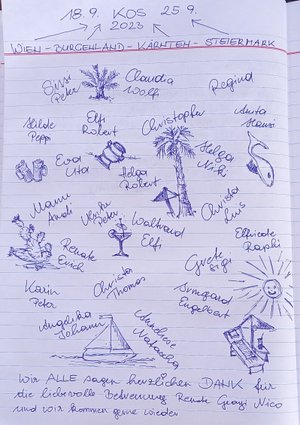 18.9. KOS 25.9.
2023
WIEN - BURGENLAND - KÄRNTEN - STEIERMARK
Sissi
Peter
Claudia
Wolf
Regina
Hilde
Peppi
Elfi
Robert
Christopher
Anita
Hansi
Eva
Uta
Helga
Robert
Helga
Niki
Manu
Andi
Peter
Waltraud
Elfi
Christa
Luis
Renate
Erich
Elfriede
Raphi
Grete
Sigi
Karin
Peter
Christa
Thomas
Irmgard
Engelbert
Angelika
Johann
Andrea
Natascha
Wir ALLE sagen herzlichen DANK für
die liebevolle Betreuung Renate Georgi Nico
und wir kommen gerne wieder